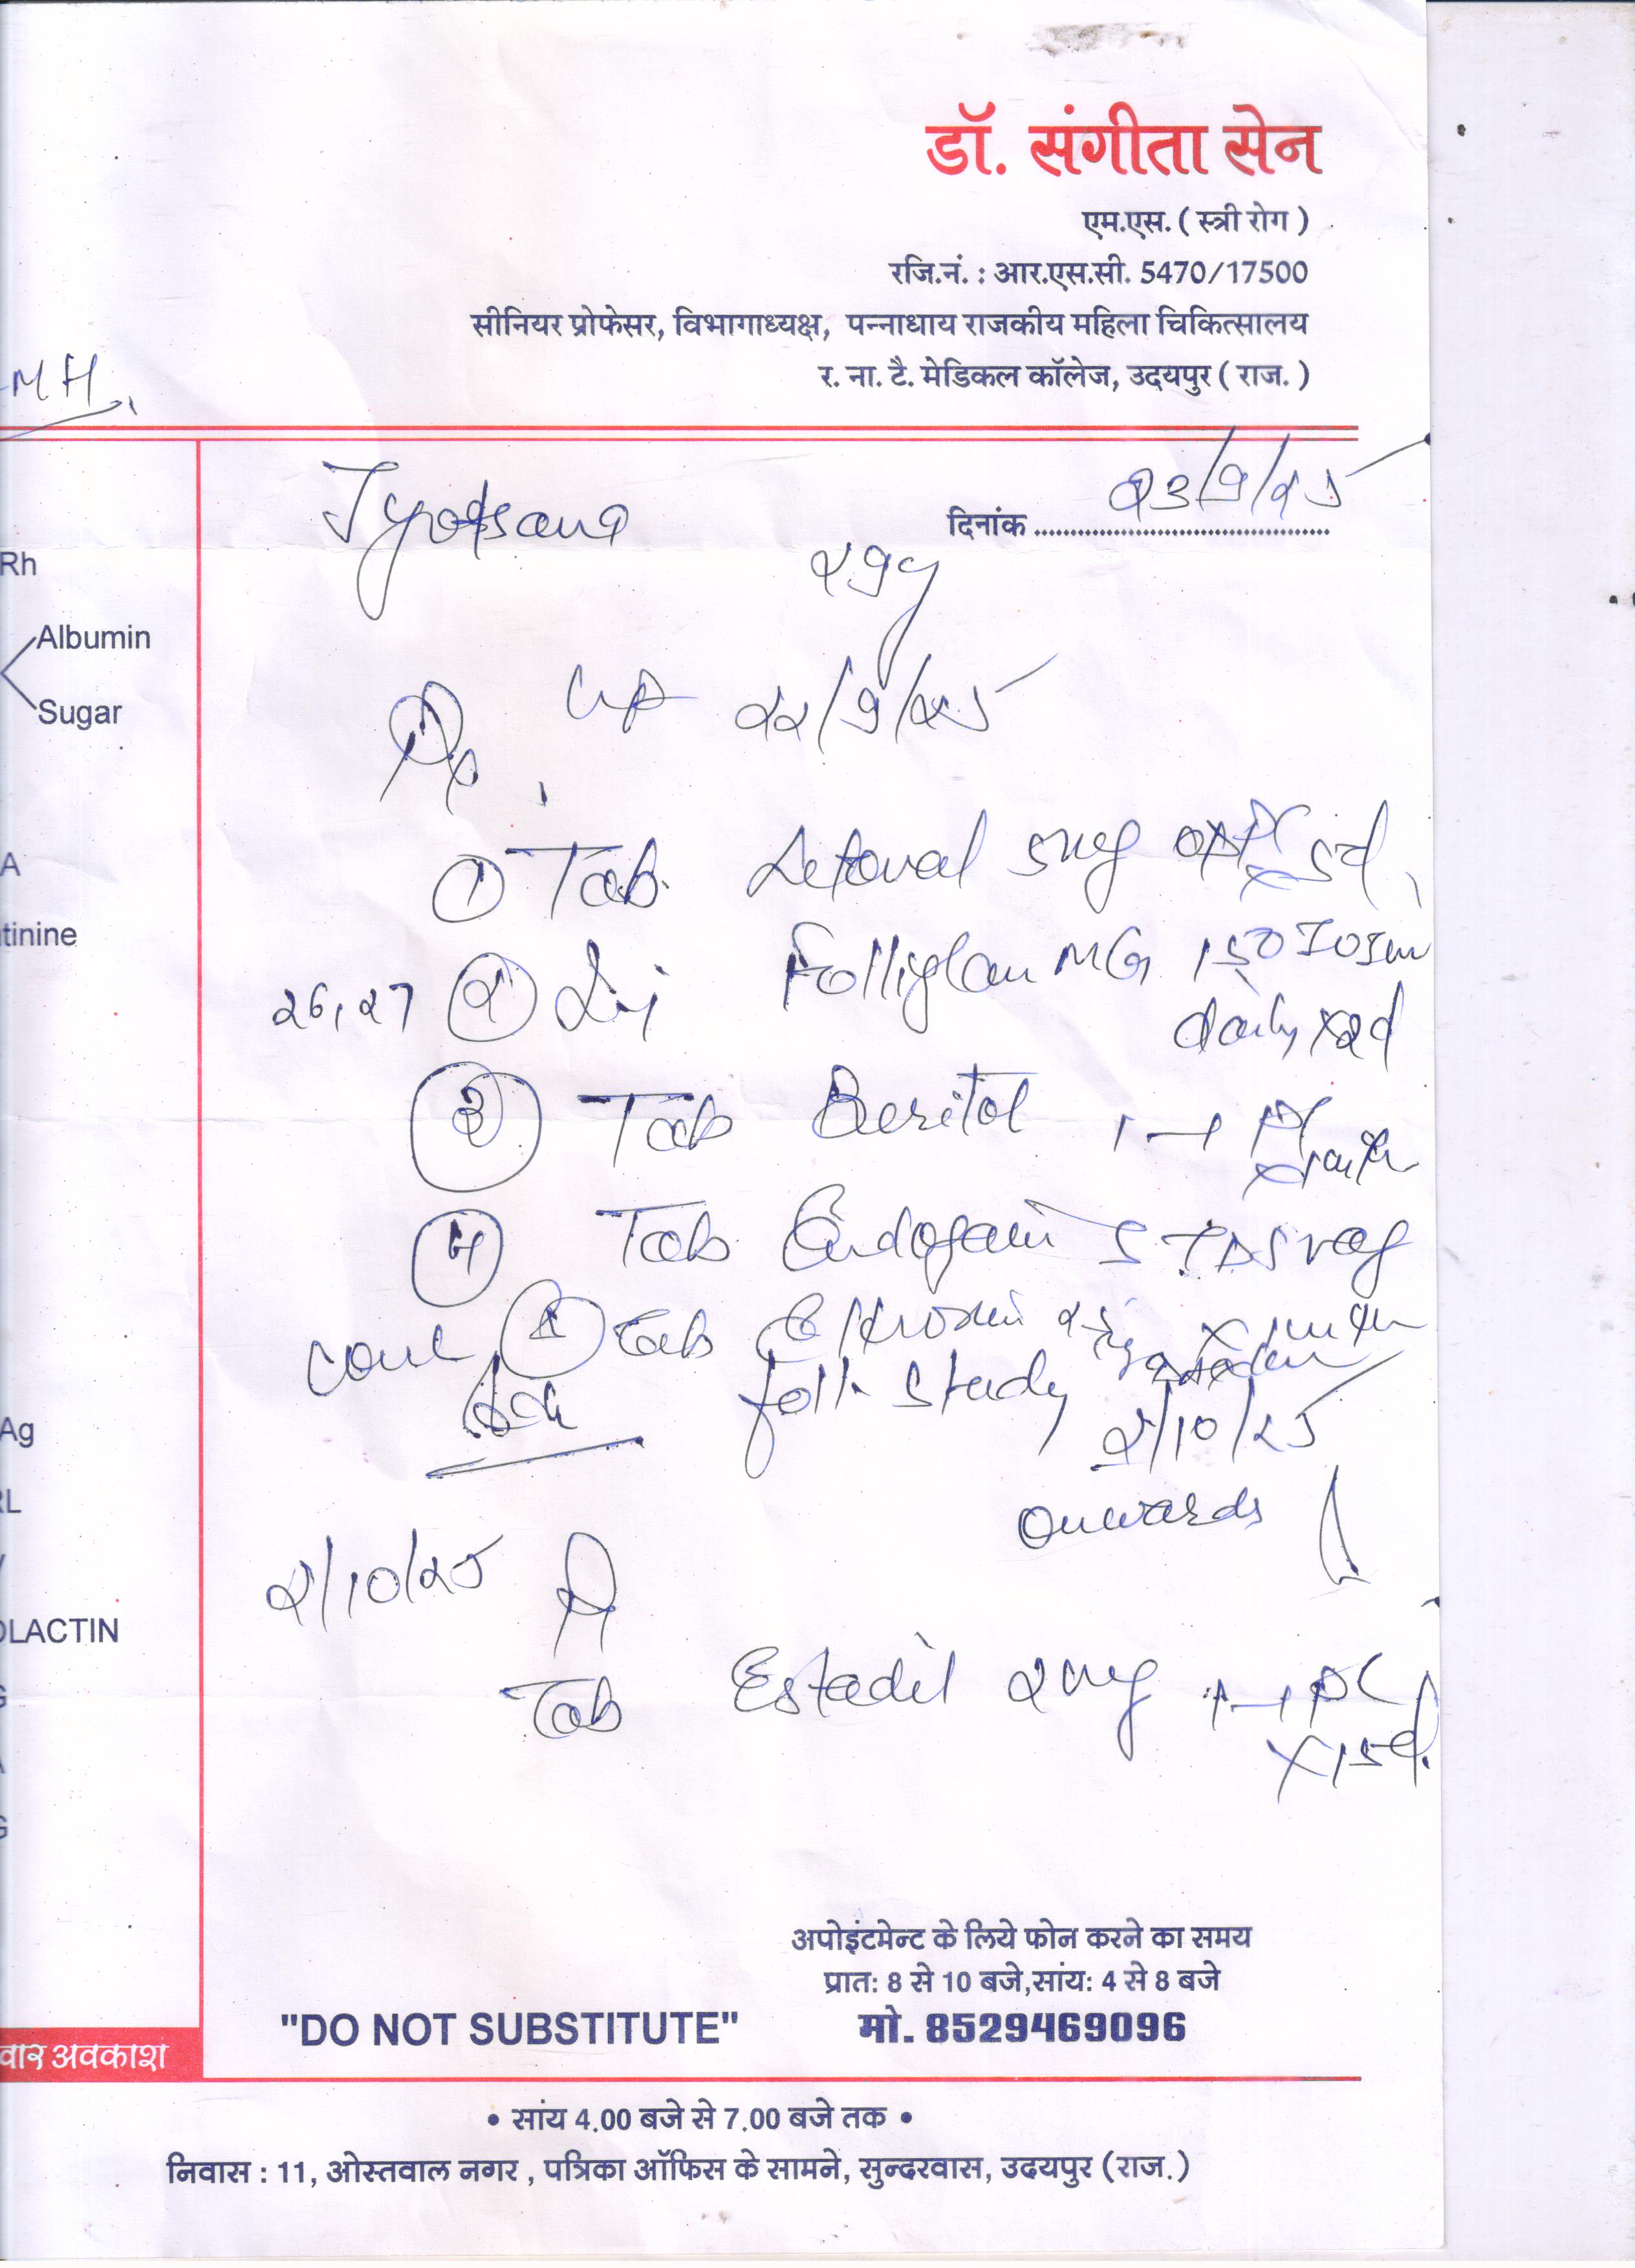 डॉ. संगीता सेन
एम.एस. ( स्त्री रोग )
रजि.नं. : आर.एस.सी. 5470/17500
सीनियर प्रोफेसर, विभागाध्यक्ष, पन्नाधाय राजकीय महिला चिकित्सालय
र. ना. टै. मेडिकल कॉलेज, उदयपुर ( राज. )
MH
Jyotsana
दिनांक 23/9/25
29y
Rh
Albumin
Sugar
22/9/25
A
① Tab. Letoval 5mg x 5d
tinine
26, 27 ② Inj Folliglan MG 150 IU I/m
daily x 2d
③ Tab
④ Tab
cont ⑤ Tab
foll. study
Ag
2/10/25
RL
onwards
2/10/25
OLACTIN
Tab Estadil 2mg 1-1 PC
x 15d.
अपोइंटमेन्ट के लिये फोन करने का समय
प्रातः 8 से 10 बजे,सांयः 4 से 8 बजे
"DO NOT SUBSTITUTE" मो. 8529469096
वार अवकाश
• सांय 4.00 बजे से 7.00 बजे तक •
निवास : 11, ओस्तवाल नगर , पत्रिका ऑफिस के सामने, सुन्दरवास, उदयपुर (राज.)